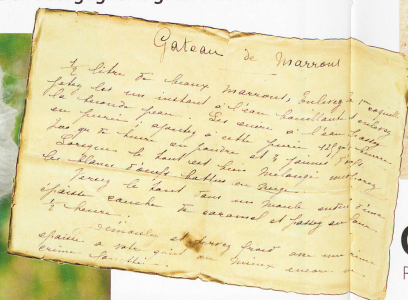 Gateau de Marrons
½ litre de beaux marrons, Enlevez la 1ère coquille
jetez les un instant à l'eau bouillante et enlevez
la seconde peau. Les cuire à l'eau, passez
en purée, ajoutez à cette purée 125 gr beurre
de sucre en poudre et 3 jaunes d'oeufs
Lorsque le tout est bien mélangé
les blancs d'oeufs battus en neige
Versez le tout dans un moule enduit d'une
épaisse couche de caramel et passez au four
½ heure.
Démoulez et servez froid avec une crème
épaisse à votre goût ou mieux encore
crème